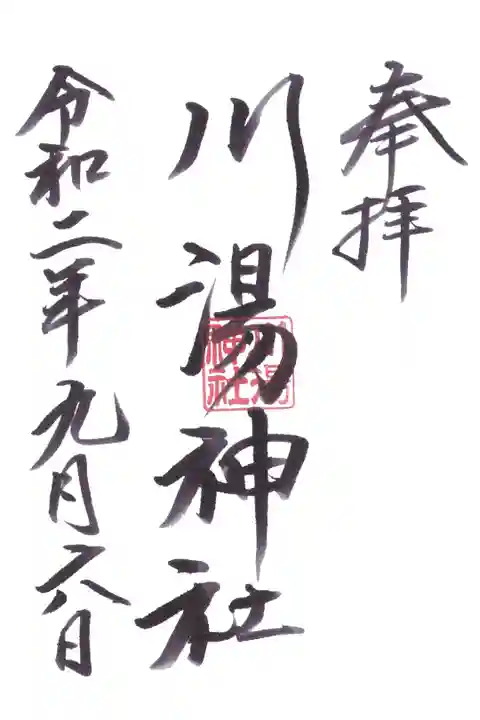 奉拝
川湯神社
川湯神社
令和二年九月六日